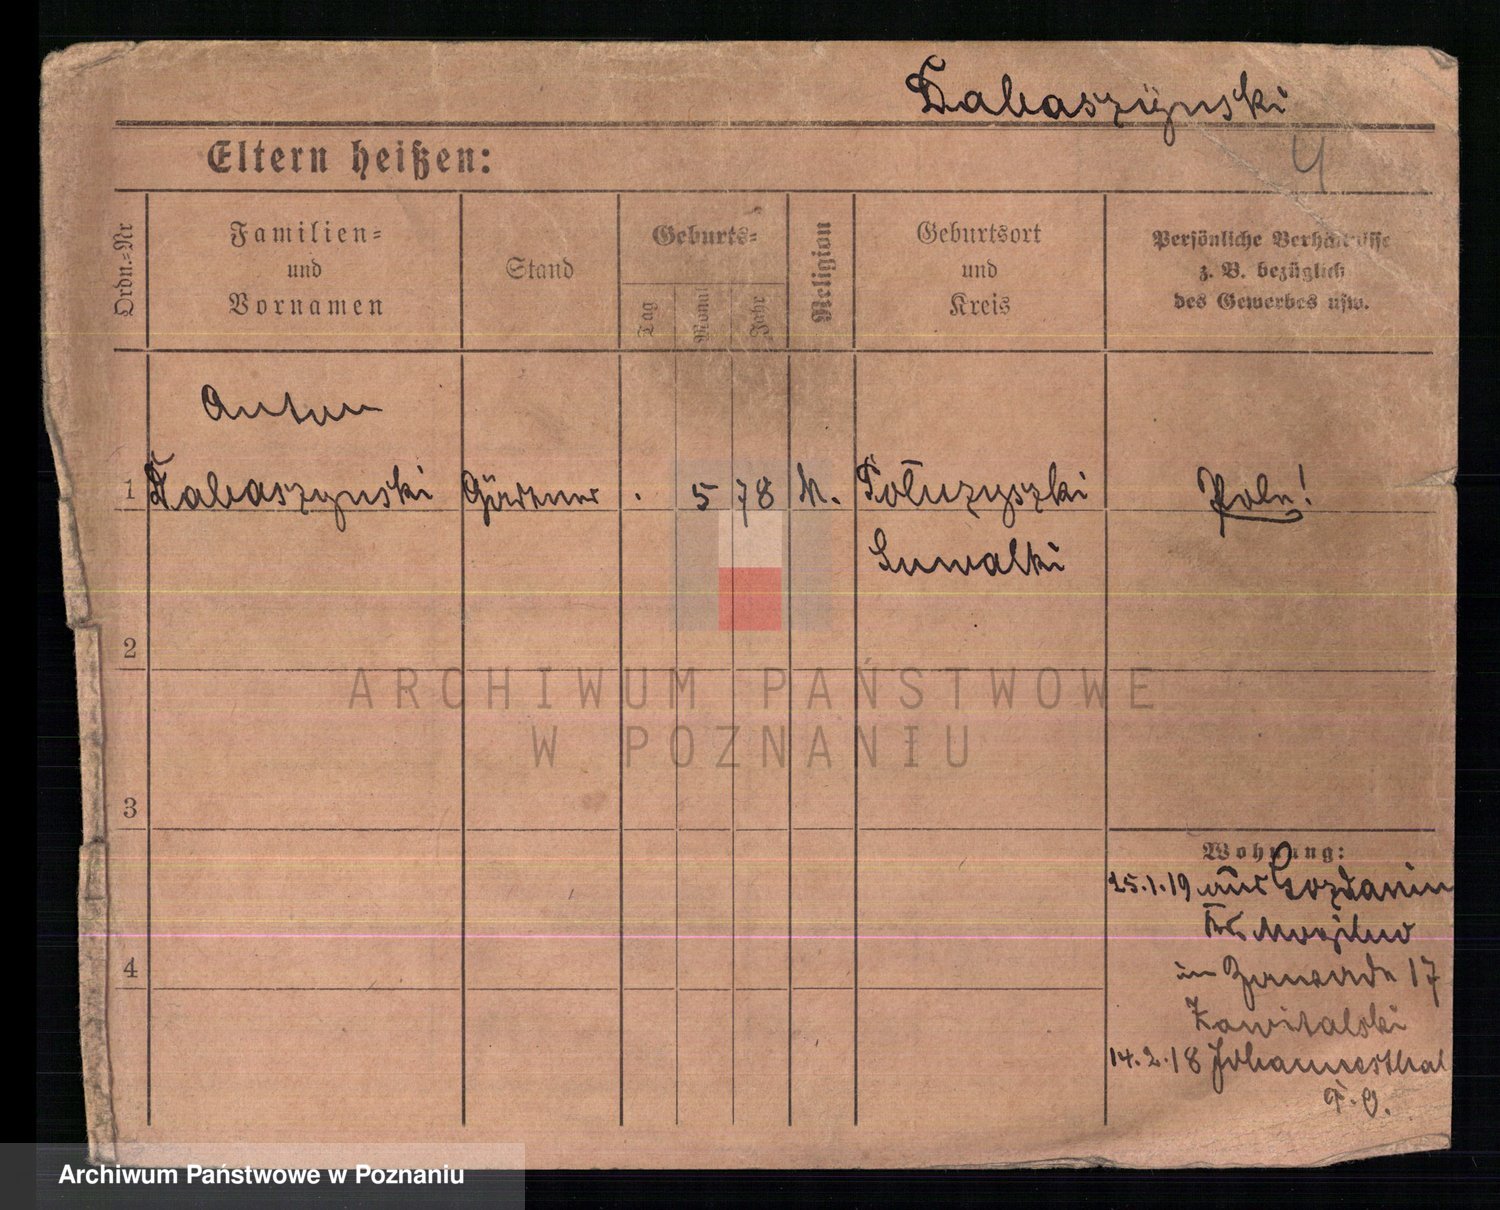 Dabaszynski
4
Eltern heißen:
Ordn.-Nr
Familien-
und
Vornamen
Stand
Geburts-
Tag
Monat
Jahr
Religion
Geburtsort
und
Kreis
Persönliche Verhältnisse
z. B. bezüglich
des Gewerbes usw.
Anton
1 Dabaszynski Gärtner . 5 78 k. Pole!
Suwalki
2
ARCHIWUM PAŃSTWOWE
W POZNANIU
3
Wohnung:
15.1.19 aus Gozdanin
Krs Mogilno
in 17
4
14.2.18 Johannesthal
Archiwum Państwowe w Poznaniu